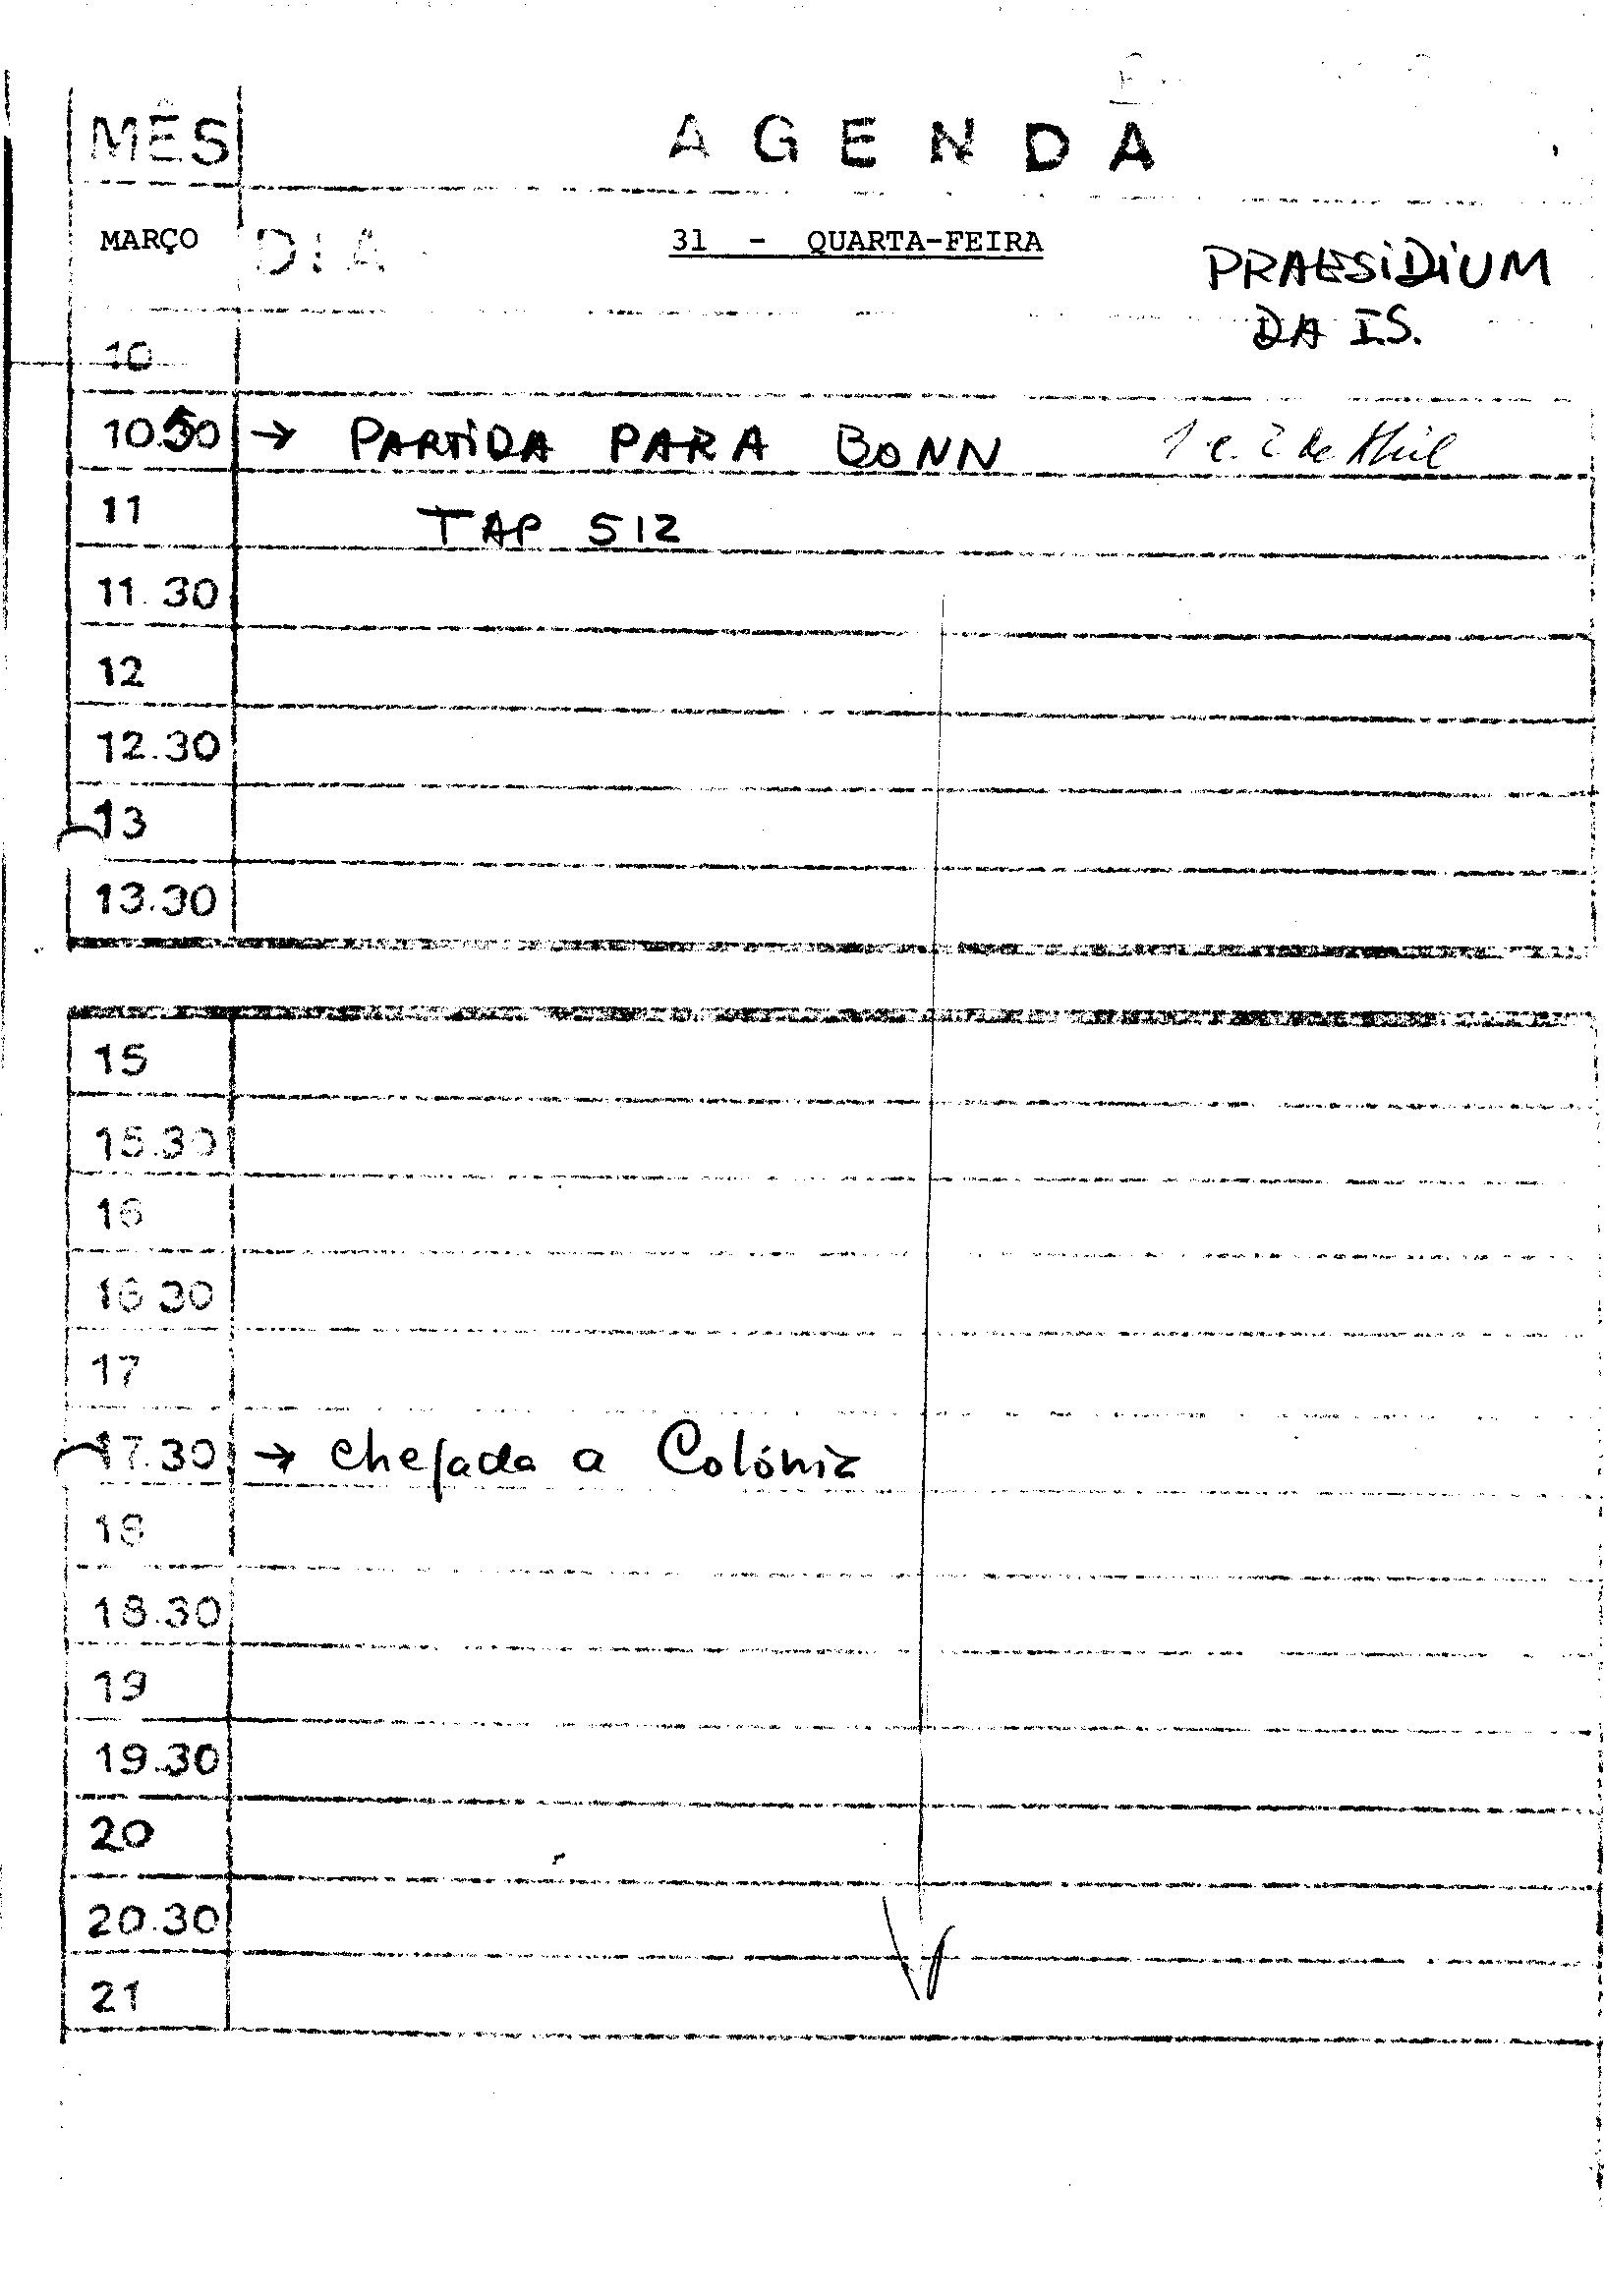 MÊS AGENDA
MARÇO DIA 31 - QUARTA-FEIRA PRAESIDIUM
DA I.S.
10
10.50 → PARTIDA PARA BONN 1 e 2 de Abril
11 TAP 512
11.30
12
12.30
13
13.30
15
15.30
16
16 30
17
17.30 → Chegada a Colónia
18
18.30
19
19.30
20
20.30
21